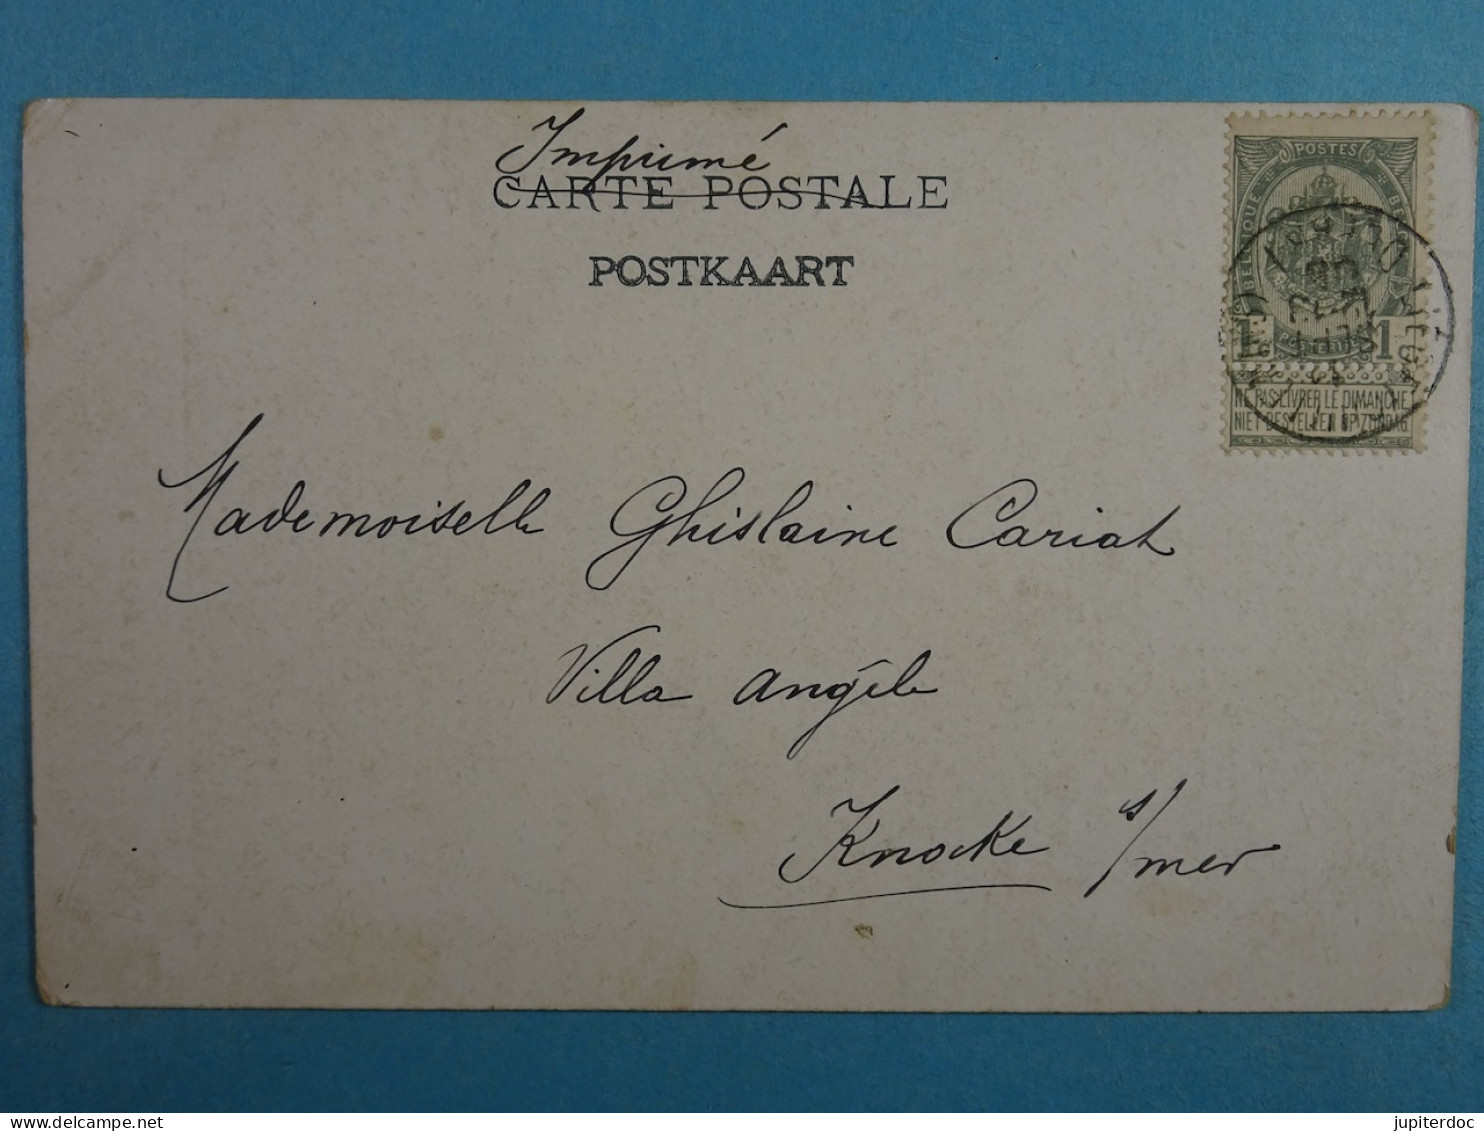 Imprimé
CARTE POSTALE
POSTKAART
POSTES
BELGIQUE
1 1
NE PAS LIVRER LE DIMANCHE
NIET BESTELLEN OP ZONDAG
Mademoiselle Ghislaine Cariat
Villa Angèle
Knocke s/mer
jupiterdoc